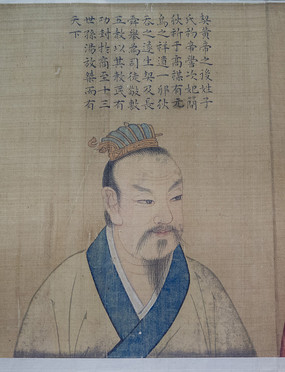 契黃帝之後姓子
氏初帝嚳次妃簡
狄祈于高禖有玄
鳥之祥遺一卵狄
吞之遂生契及長
舜舉為司徒敬敷
五教以其教民有
功封於商至十三
世孫湯放桀而有
天下